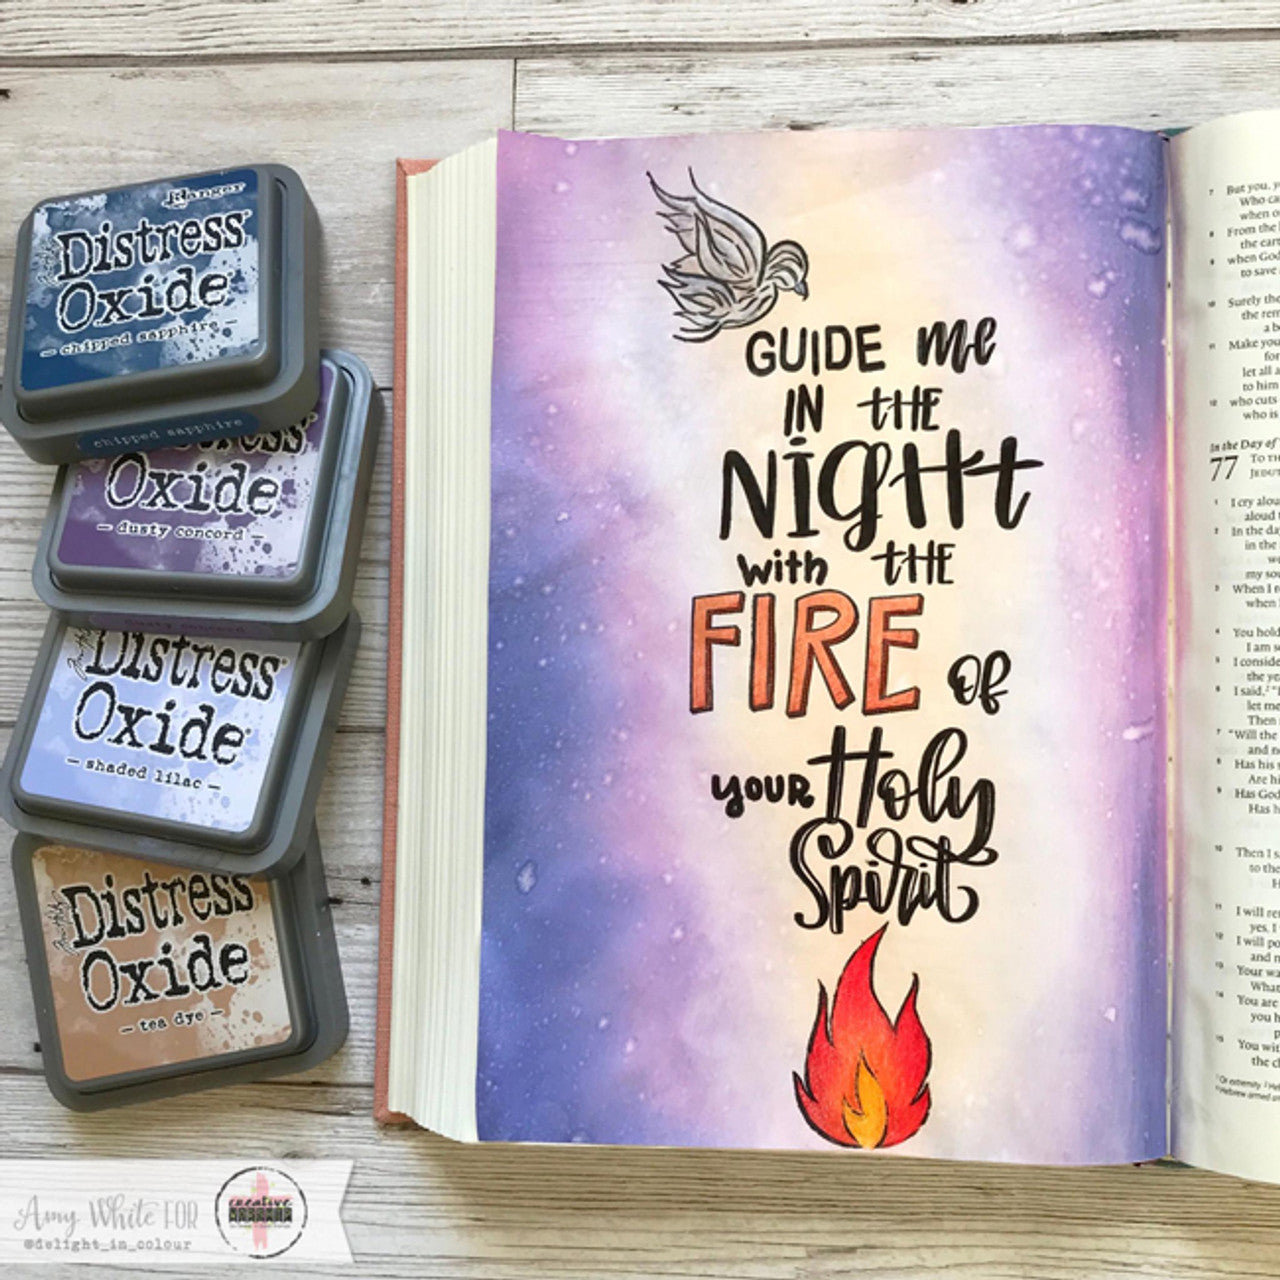 Ranger
Distress
Oxide
— chipped sapphire —
chipped sapphire
Oxide
— dusty concord —
dusty concord
Distress
Oxide
— shaded lilac —
Distress
Oxide
— tea dye —
GUIDE me
IN tHE
NiGHt
with tHE
FIRE OF
YOUR Holy
Spirit
But you, y
Who ca
when o
From the
the eart
when God
to save
Surely the
the rem
a b
Make you
for
let all a
to him
who cuts
who is
In the Day of
77 TO TH
JEDUT
I cry alou
aloud t
In the day
in the
my sou
When I r
when
You hold
I am s
I conside
the ye
I said,
let me
Then
"Will the
and ne
Has his
Are hi
Has God
Has h
Then I s
to the
H
I will re
yes, I
I will po
and m
Your wa
What
You are
you h
p
You wit
the c
Or extremity
Hebrew armed
Amy White FOR
creative
@delight_in_colour